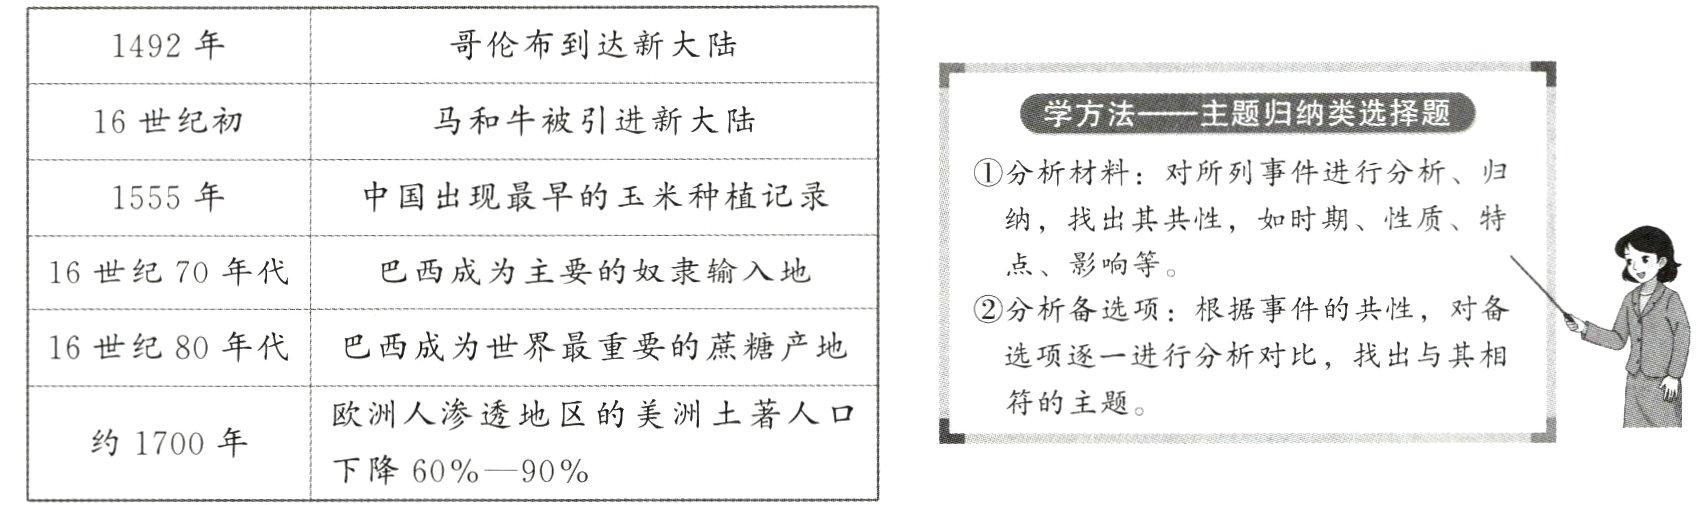 1492 年 哥伦布到达新大陆
16 世纪初 马和牛被引进新大陆
1555 年 中国出现最早的玉米种植记录
16 世纪 70 年代 巴西成为主要的奴隶输入地
16 世纪 80 年代 巴西成为世界最重要的蔗糖产地
约 1700 年 欧洲人渗透地区的美洲土著人口
下降 60%—90%
学方法——主题归纳类选择题
①分析材料：对所列事件进行分析、归
纳，找出其共性，如时期、性质、特
点、影响等。
②分析备选项：根据事件的共性，对备
选项逐一进行分析对比，找出与其相
符的主题。